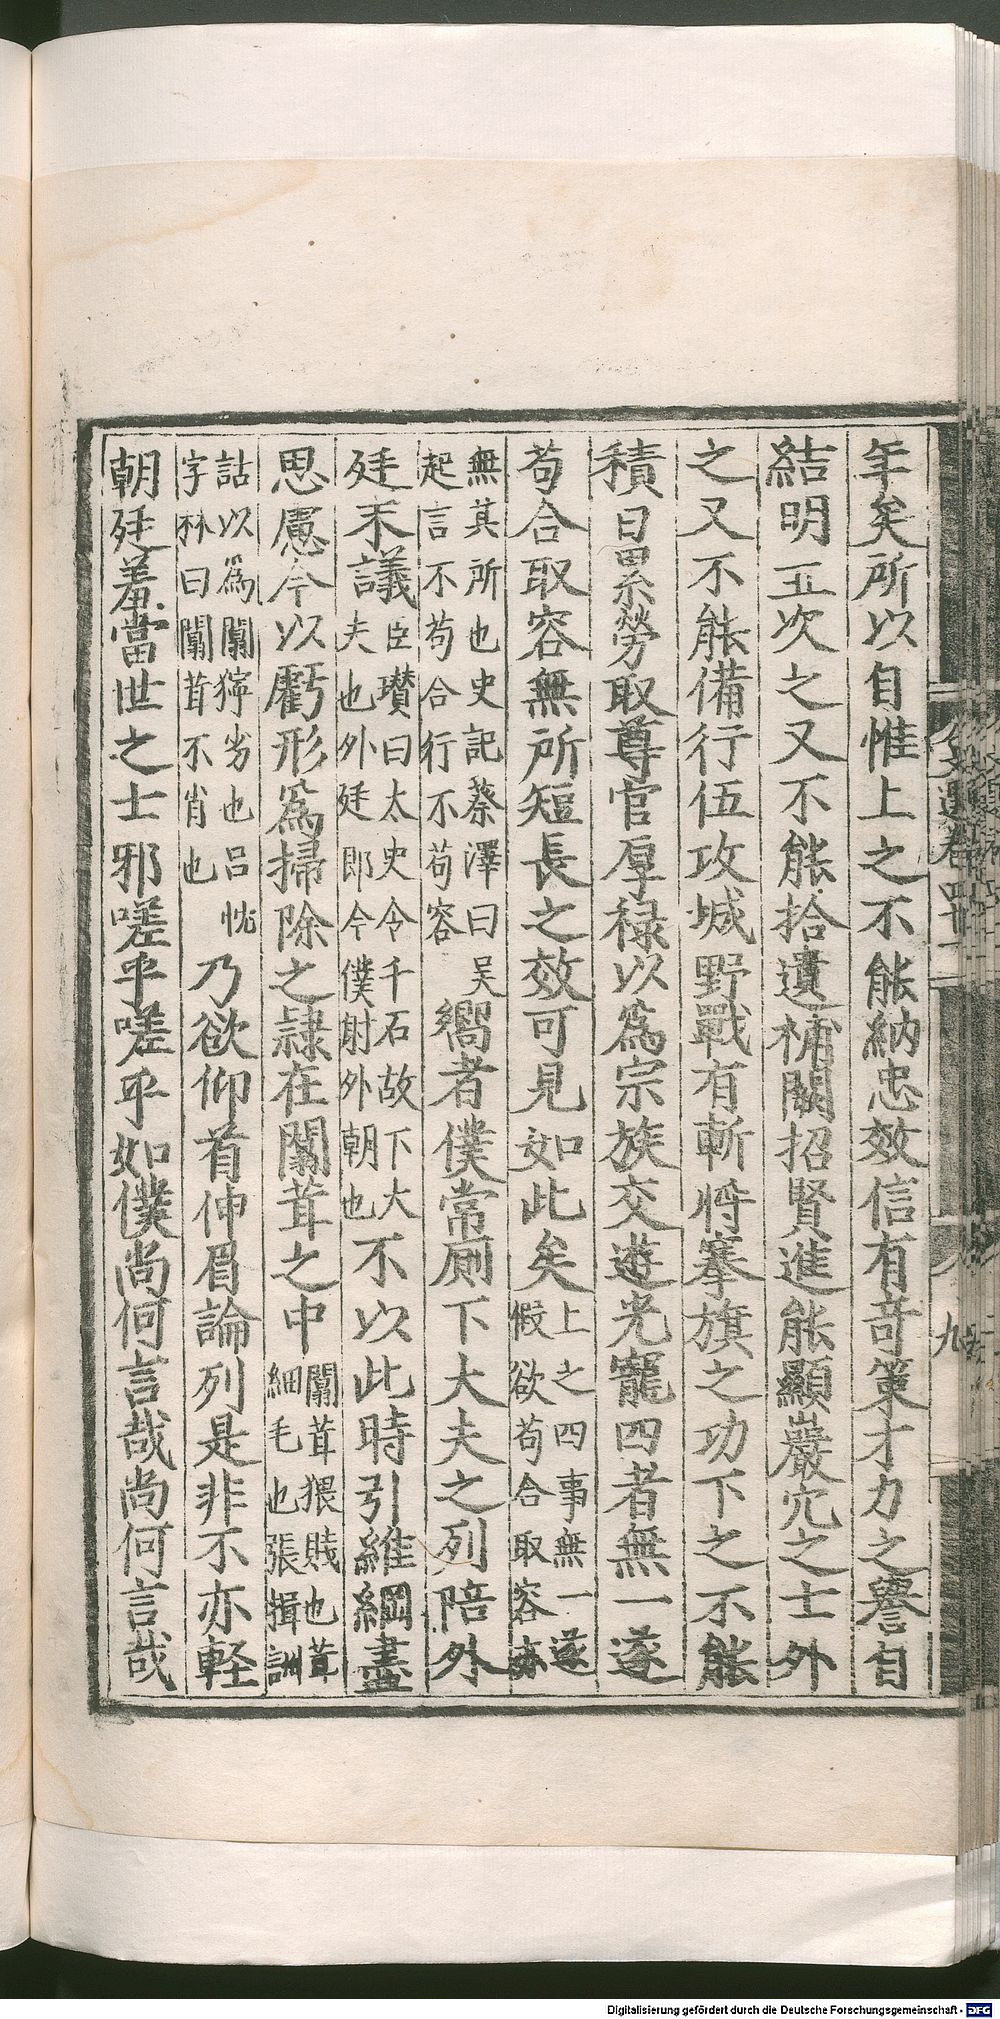 年矣所以自惟上之不能納忠效信有奇策才力之譽自
結明主次之又不能拾遺補闕招賢進能顯巖穴之士外
之又不能備行伍攻城野戰有斬將搴旗之功下之不能
積日累勞取尊官厚祿以爲宗族交遊光寵四者無一遂
苟合取容無所短長之效可見如此矣上之四事無一遂假欲苟合取容亦
無其所也史記蔡澤曰吴起言不苟合行不苟容嚮者僕常厠下大夫之列陪外
廷末議臣瓉曰太史令千石故下大夫也外廷郎今僕射外朝也不以此時引維綱盡
思慮今以虧形爲掃除之隸在闒茸之中闒茸猥賤也茸細毛也張揖訓
詁以爲闒獰劣也呂忱字林曰闒茸不肖也乃欲仰首伸眉論列是非不亦輕
朝廷羞當世之士邪嗟乎嗟乎如僕尚何言哉尚何言哉
文選卷四十一
九
Digitalisierung gefördert durch die Deutsche Forschungsgemeinschaft - DFG